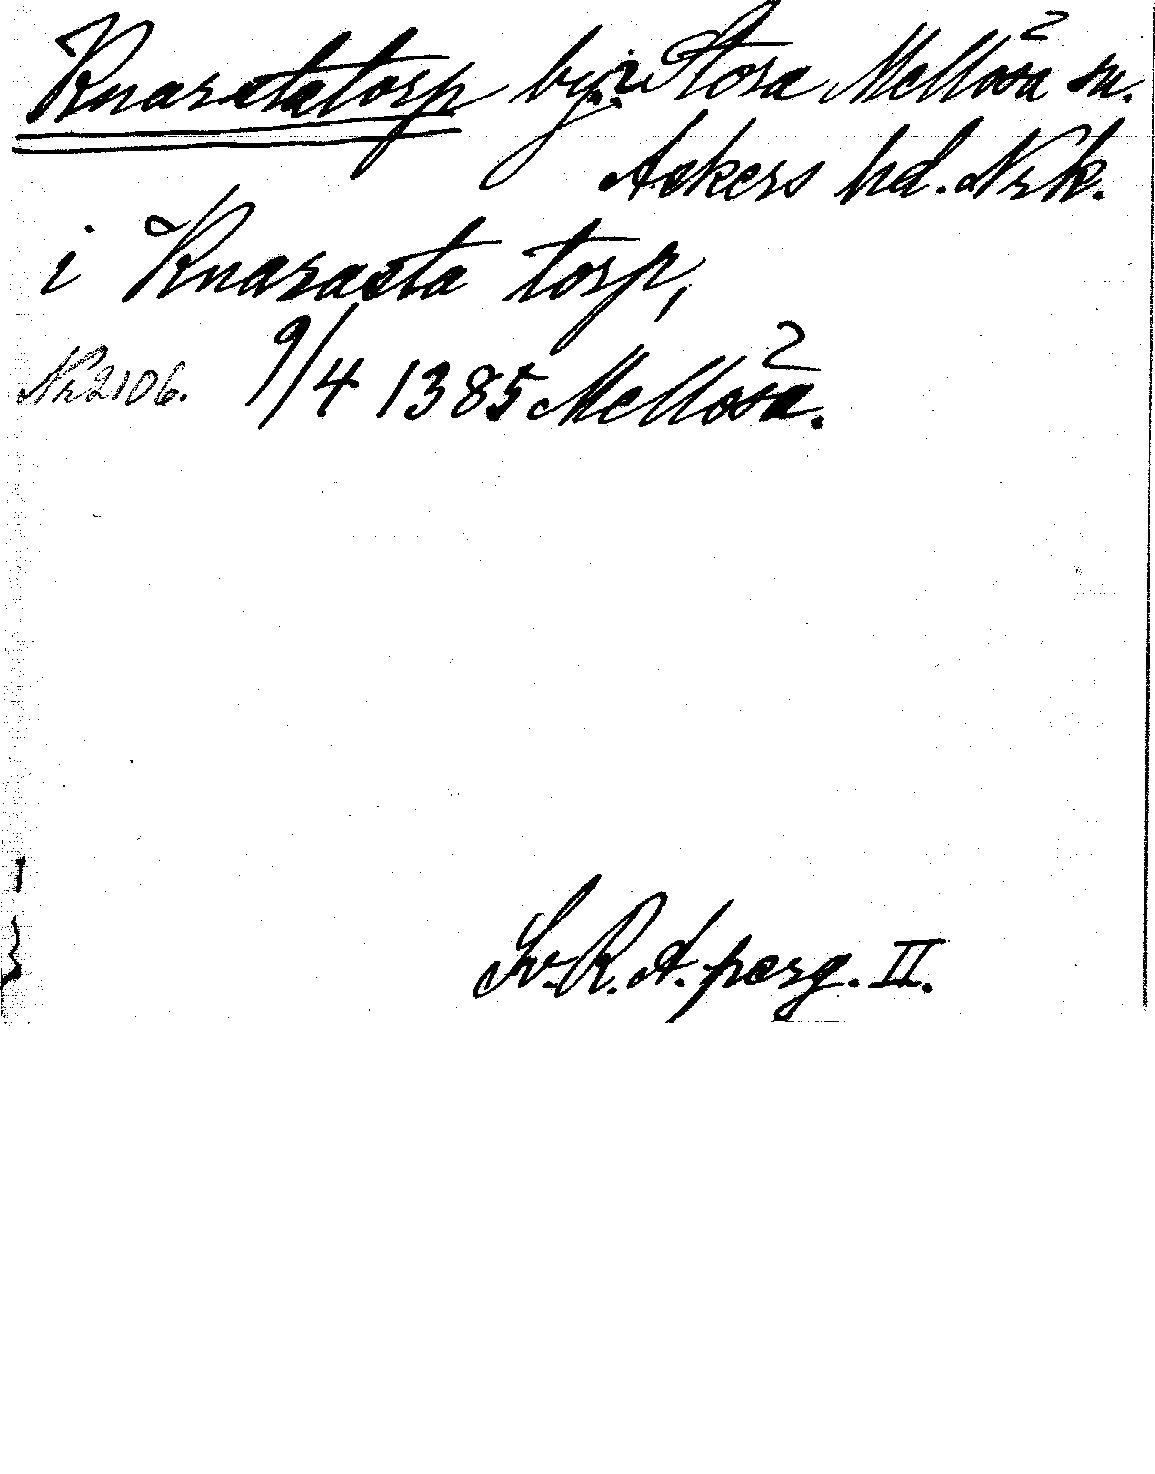 Knarstatorp by i Stora Mellösa sn.
Askers hd. Nrk.
i Knarasta torp,
Nr 2106. 9/4 1385 Mellösa.
Sv. R. A. perg. II.